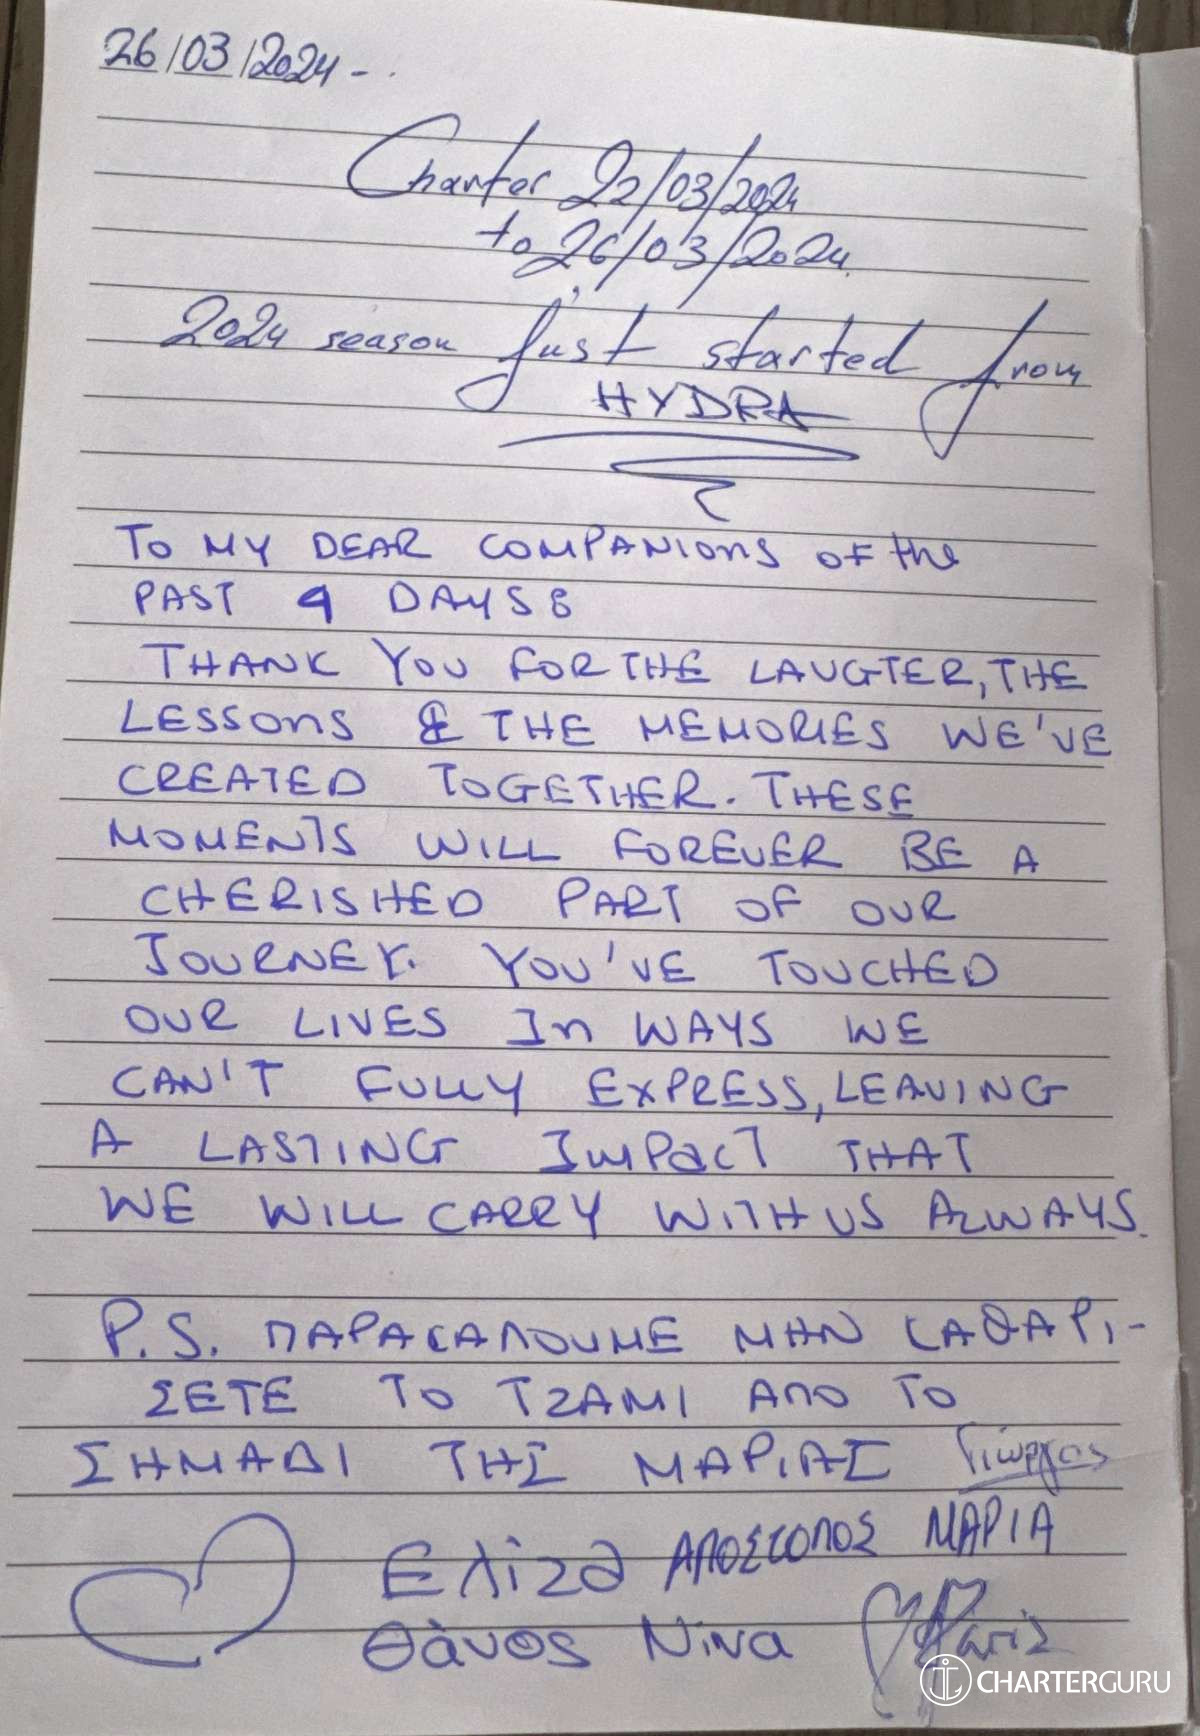 26/03/2024-
Charter 22/03/2024
to 26/03/2024.
2024 season just started from
HYDRA
TO MY DEAR COMPANIONS OF the
PAST 4 DAYS:
THANK YOU FOR THE LAUGTER, THE
LESSONS & THE MEMORIES WE'VE
CREATED TOGETHER. THESE
MOMENTS WILL FOREVER BE A
CHERISHED PART OF OUR
JOURNEY. YOU'VE TOUCHED
OUR LIVES IN WAYS WE
CAN'T FULLY EXPRESS, LEAVING
A LASTING IMPACT THAT
WE WILL CARRY WITH US ALWAYS.
P.S. ΠΑΡΑΚΑΛΟΥΜΕ ΜΗΝ ΚΑΘΑΡΙ-
ΣΕΤΕ ΤΟ ΤΖΑΜΙ ΑΠΟ ΤΟ
ΣΗΜΑΔΙ ΤΗΣ ΜΑΡΙΑΣ Γιώργος
Ελίζα ΑΠΟΣΤΟΛΟΣ ΜΑΡΙΑ
Θάνος Νίνα
CHARTERGURU